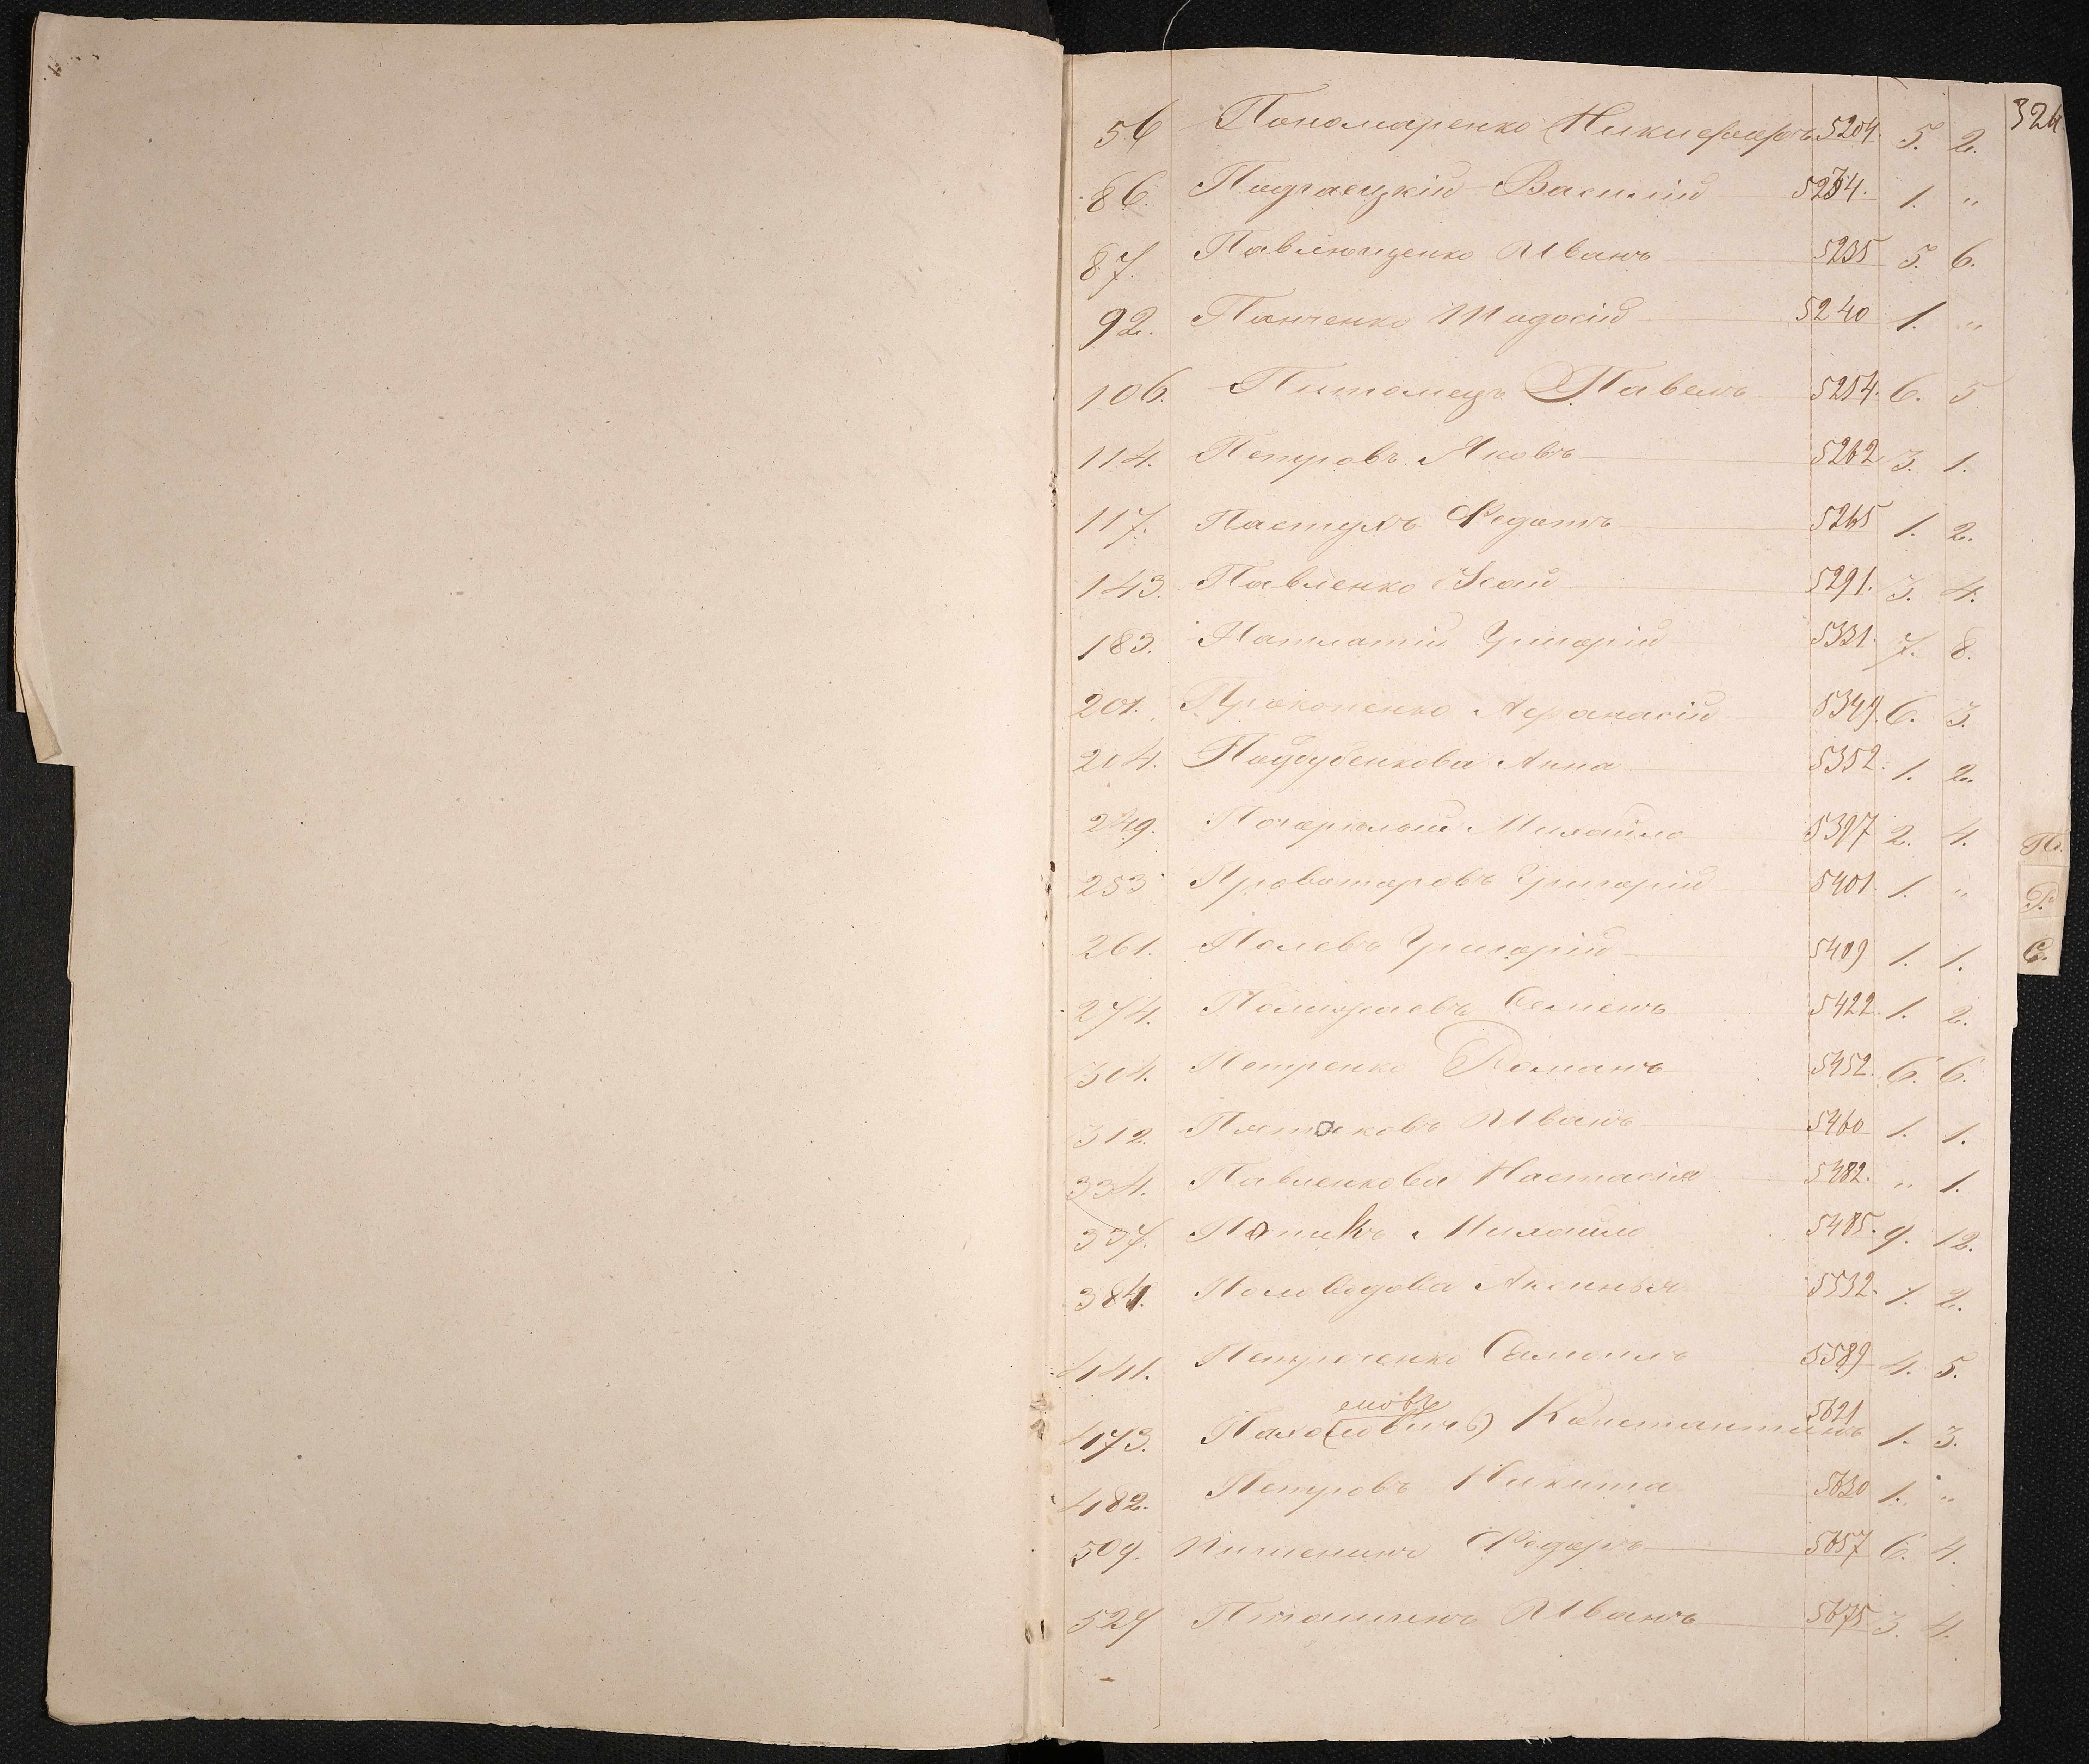 324
56 Пономаренко Никифоръ 5204. 5. 2.
86. Подгаецкій Василій 5234. 1. "
87. Павлющенко Иванъ 5235 5. 6.
92. Панченко Тодосій 5240 1. "
106. Питомецъ Павелъ 5254. 6. 5
114. Петровъ Яковъ 5262 3. 1.
117. Пастухъ Федотъ 5265 1. 2.
143. Павленко Исай 5291. 3. 4.
183. Григорій 5331. 7. 8.
201. Прокопенко Афанасій 5349. 6. 3.
204. Анна 5352. 1. 2.
249. Погорѣлый Михайло 5397 2. 4.
253 Проваторовъ Григорій 5401. 1. "
261. Григорій 5409 1. 1.
274. Семенъ 5422. 1. 2.
304. Петренко Романъ 5452. 6. 6.
312. Иванъ 5460 1. 1.
334. Павленкова Настасія 5482. " 1.
337. Михайло 5485. 9. 12.
384. Аксинья 5532. 1. 2.
441. Самойло 5589 4. 5.
473. Константинъ 5621 1. 3.
482. Петровъ Никита 5630 1. "
509. Федоръ 5657 6. 4.
527 Иванъ 5675 3. 4.
П.
Р.
С.